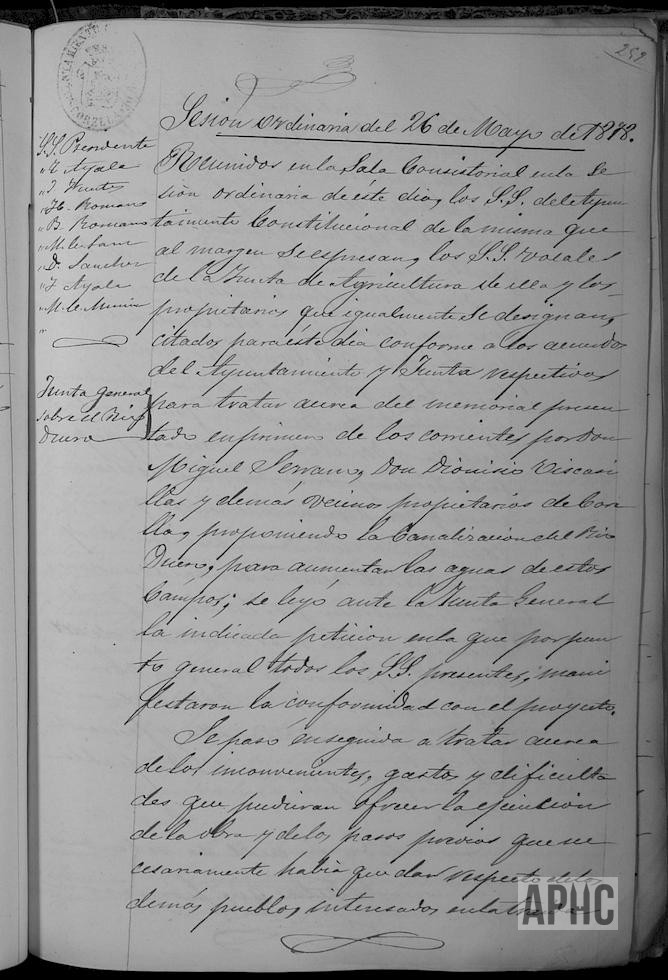 259
Sesión ordinaria del 26 de Mayo de 1878.
S.S. Presidente
" Ayala
" J. Fuertes
" Romano
" B. Romano
" M.
" D. Sanchez
" J. Ayala
" M.
"
Junta general
sobre el Rio
Duero
Reunidos en la Sala Consistorial en la Se
sion ordinaria de éste dia, los S.S. del Ayun
tamiento Constitucional de la misma que
al margen se espresan, los S.S. vocales
de la Junta de Agricultura de ella y los
propietarios que igualmente se designan,
citados para éste dia conforme a los acuerdos
del Ayuntamiento y Junta respectivos
para tratar acerca del memorial presen
tado en primero de los corrientes por Don
Miguel Serrano, Don Dionisio Viscasi
llas y demás vecinos propietarios de Core
lla, proponiendo la Canalizacion del Rio
Duero, para aumentar las aguas de estos
Campos; se leyó ante la Junta General
la indicada peticion en la que por pun
to general todos los S.S. presentes, mani
festaron la conformidad con el proyecto.
Se pasó enseguida a tratar acerca
de los inconvenientes, gastos y dificulta
des que pudieran ofrecer la ejecucion
de la obra y de los pasos previos que ne
cesariamente habia que dar respecto de los
demás pueblos interesados en la
APHC